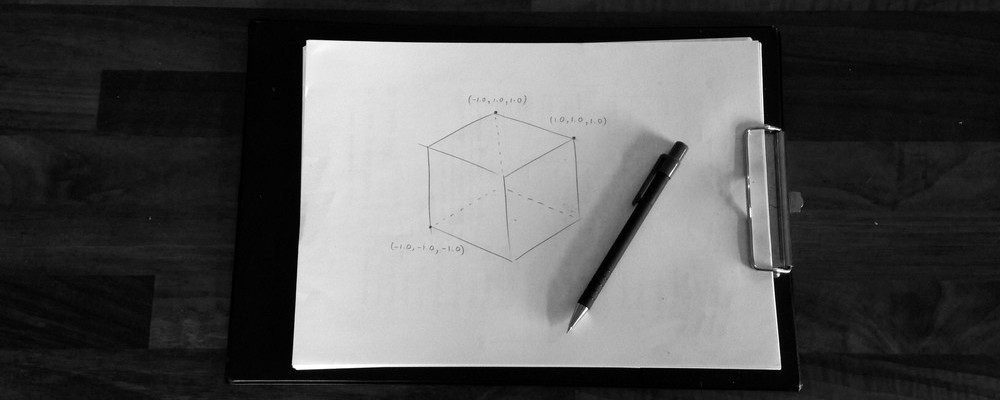 (-1.0, 1.0, 1.0)
(1.0, 1.0, 1.0)
(-1.0, -1.0, -1.0)